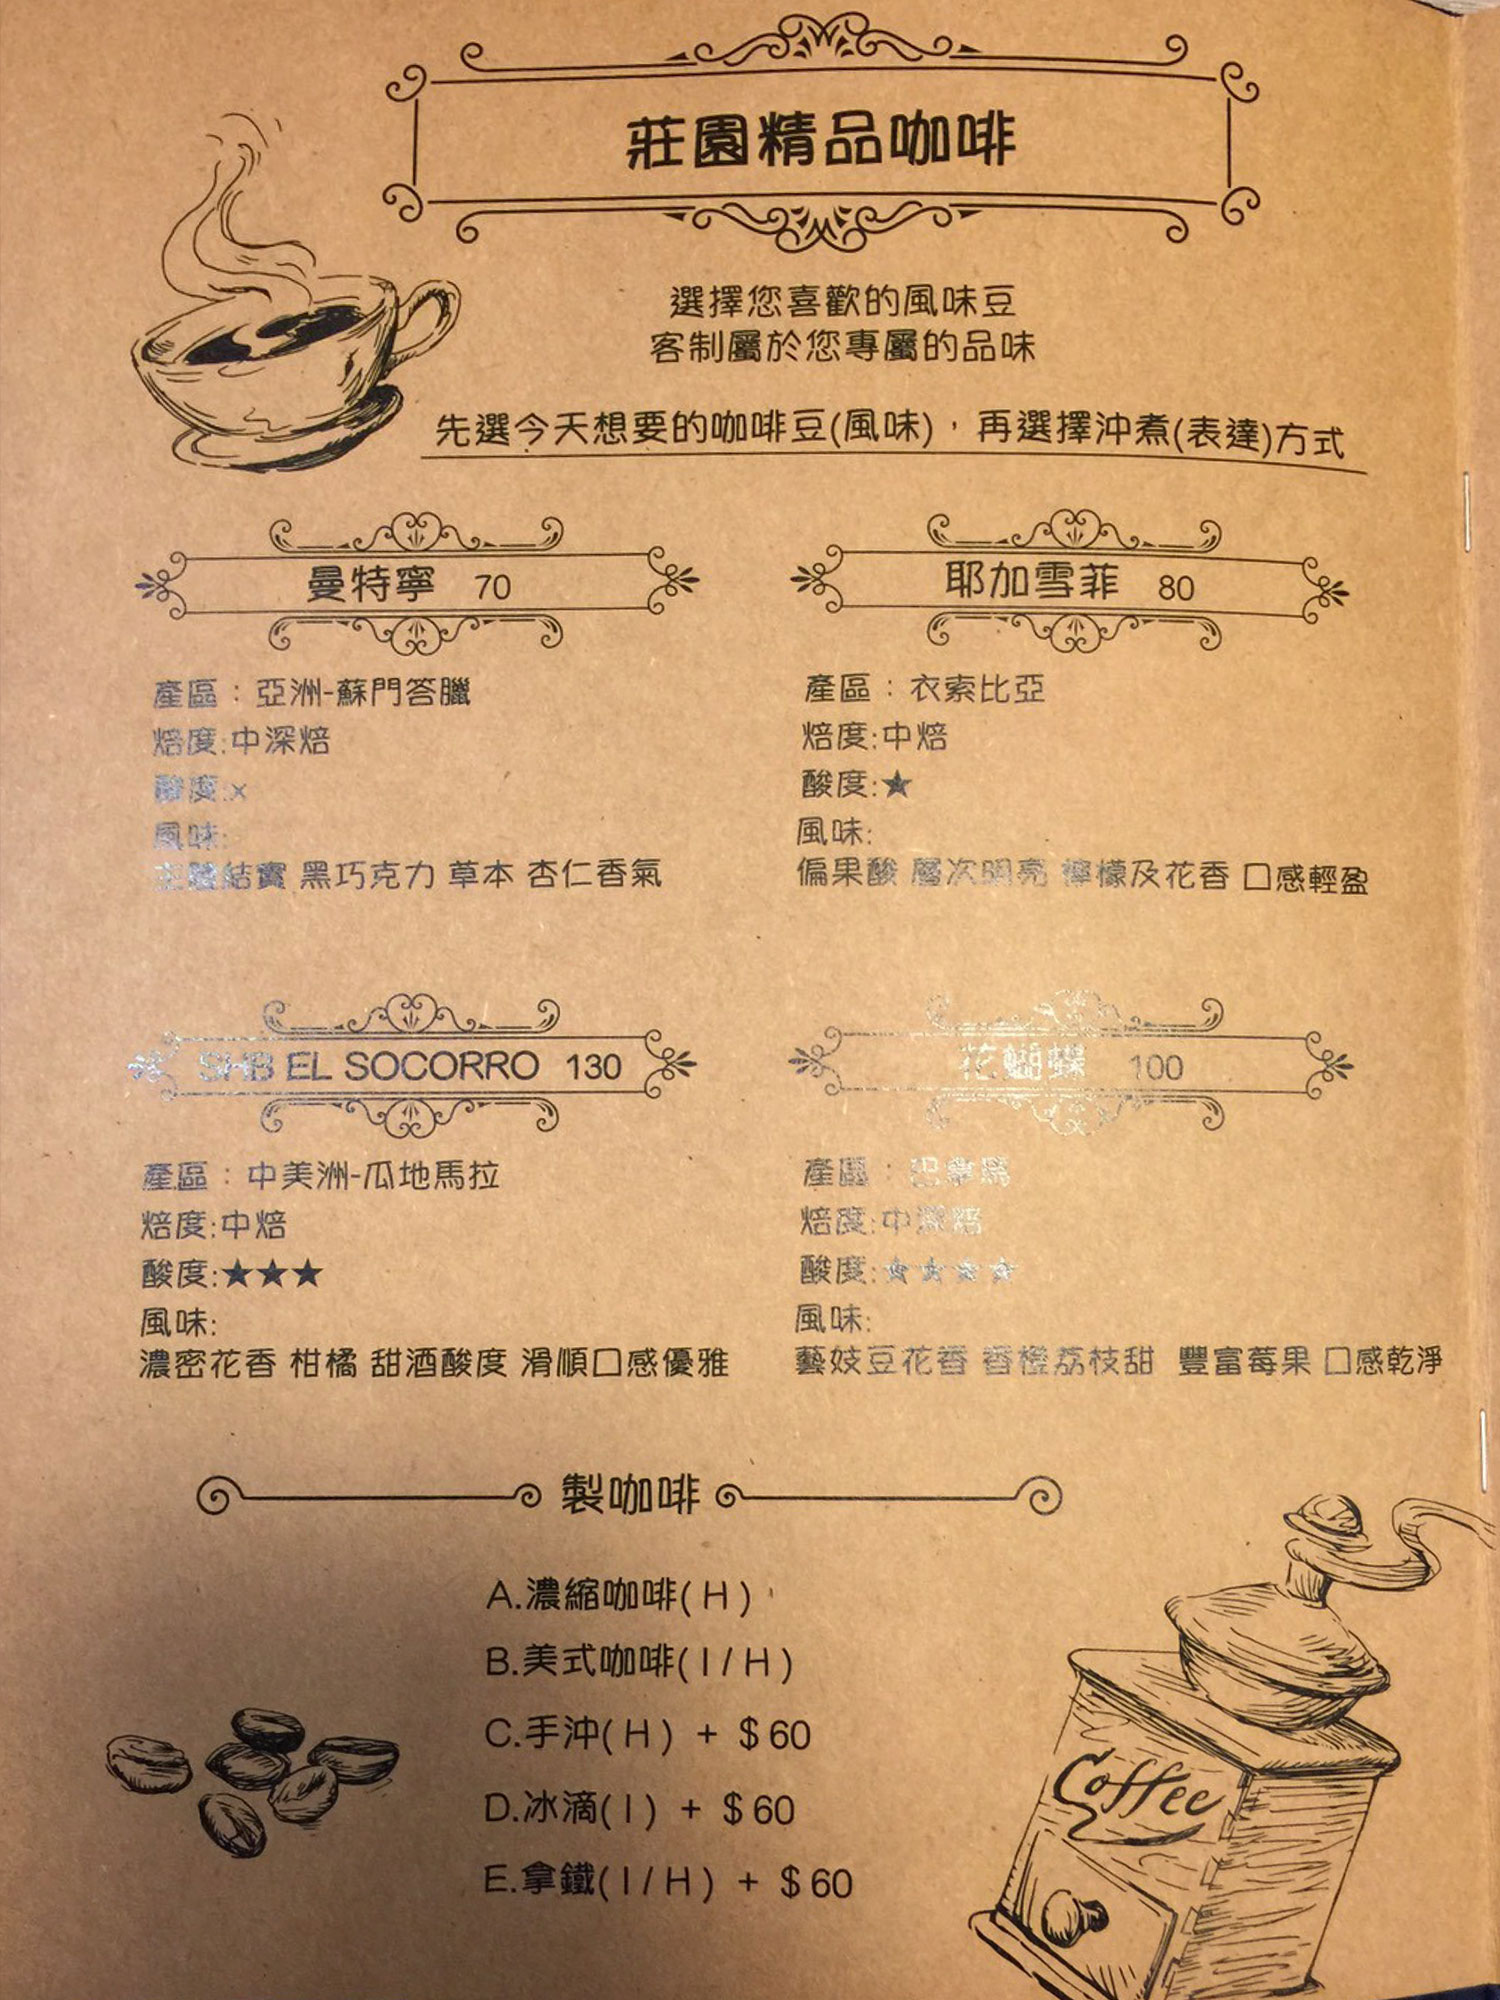 莊園精品咖啡
選擇您喜歡的風味豆
客制屬於您專屬的品味
先選今天想要的咖啡豆(風味)，再選擇沖煮(表達)方式
曼特寧 70
產區：亞洲-蘇門答臘
焙度:中深焙
酸度:×
風味:
主體結實 黑巧克力 草本 杏仁香氣
耶加雪菲 80
產區：衣索比亞
焙度:中焙
酸度:★
風味:
偏果酸 層次明亮 檸檬及花香 口感輕盈
SHB EL SOCORRO 130
產區：中美洲-瓜地馬拉
焙度:中焙
酸度:★★★
風味:
濃密花香 柑橘 甜酒酸度 滑順口感優雅
花蝴蝶 100
產區：巴拿馬
焙度:中深焙
酸度:★★★★
風味:
藝妓豆花香 香橙荔枝甜 豐富莓果 口感乾淨
製咖啡
A.濃縮咖啡(H)
B.美式咖啡(I/H)
C.手沖(H) + $60
D.冰滴(I) + $60
E.拿鐵(I/H) + $60
Coffee